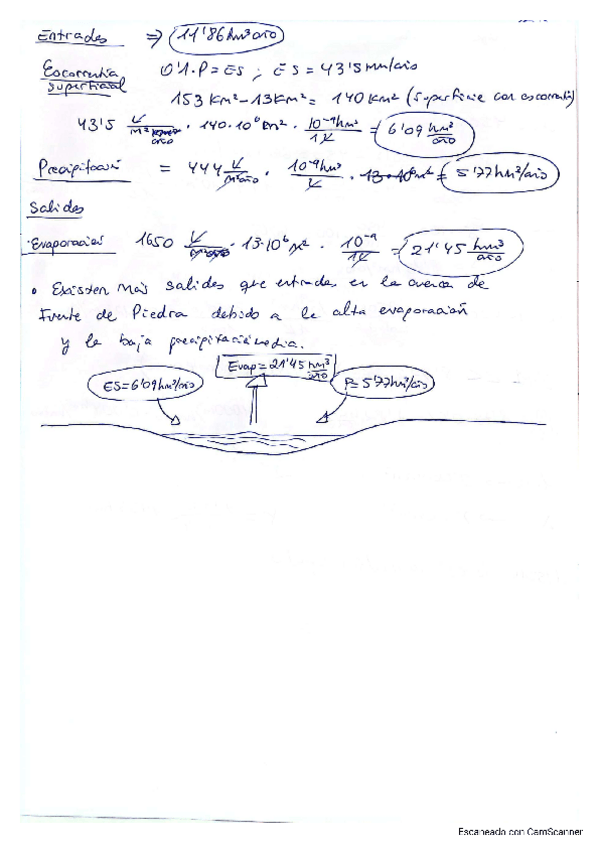 Entradas ⇒ 11'86 hm³/año
Escorrentía superficial 0'1·P = ES ; ES = 43'5 mm/año
153 Km² - 13 Km² = 140 Km² (superficie con escorrentía)
43'5 L/m² año · 140·10⁶ m² · 10⁻⁹ hm³/1L = 6'09 hm³/año
Precipitación = 444 L/m² año · 10⁻⁹ hm³/L · 13·10⁶ m² = 5'77 hm³/año
Salidas
·Evaporación 1650 L/m² año · 13·10⁶ m² · 10⁻⁹/1L = 21'45 hm³/año
• Existen más salidas que entradas en la cuenca de
Fuente de Piedra debido a la alta evaporación
y la baja precipitación media.
Evap = 21'45 hm³/año
ES = 6'09 hm³/año P = 5'77 hm³/año
Escaneado con CamScanner